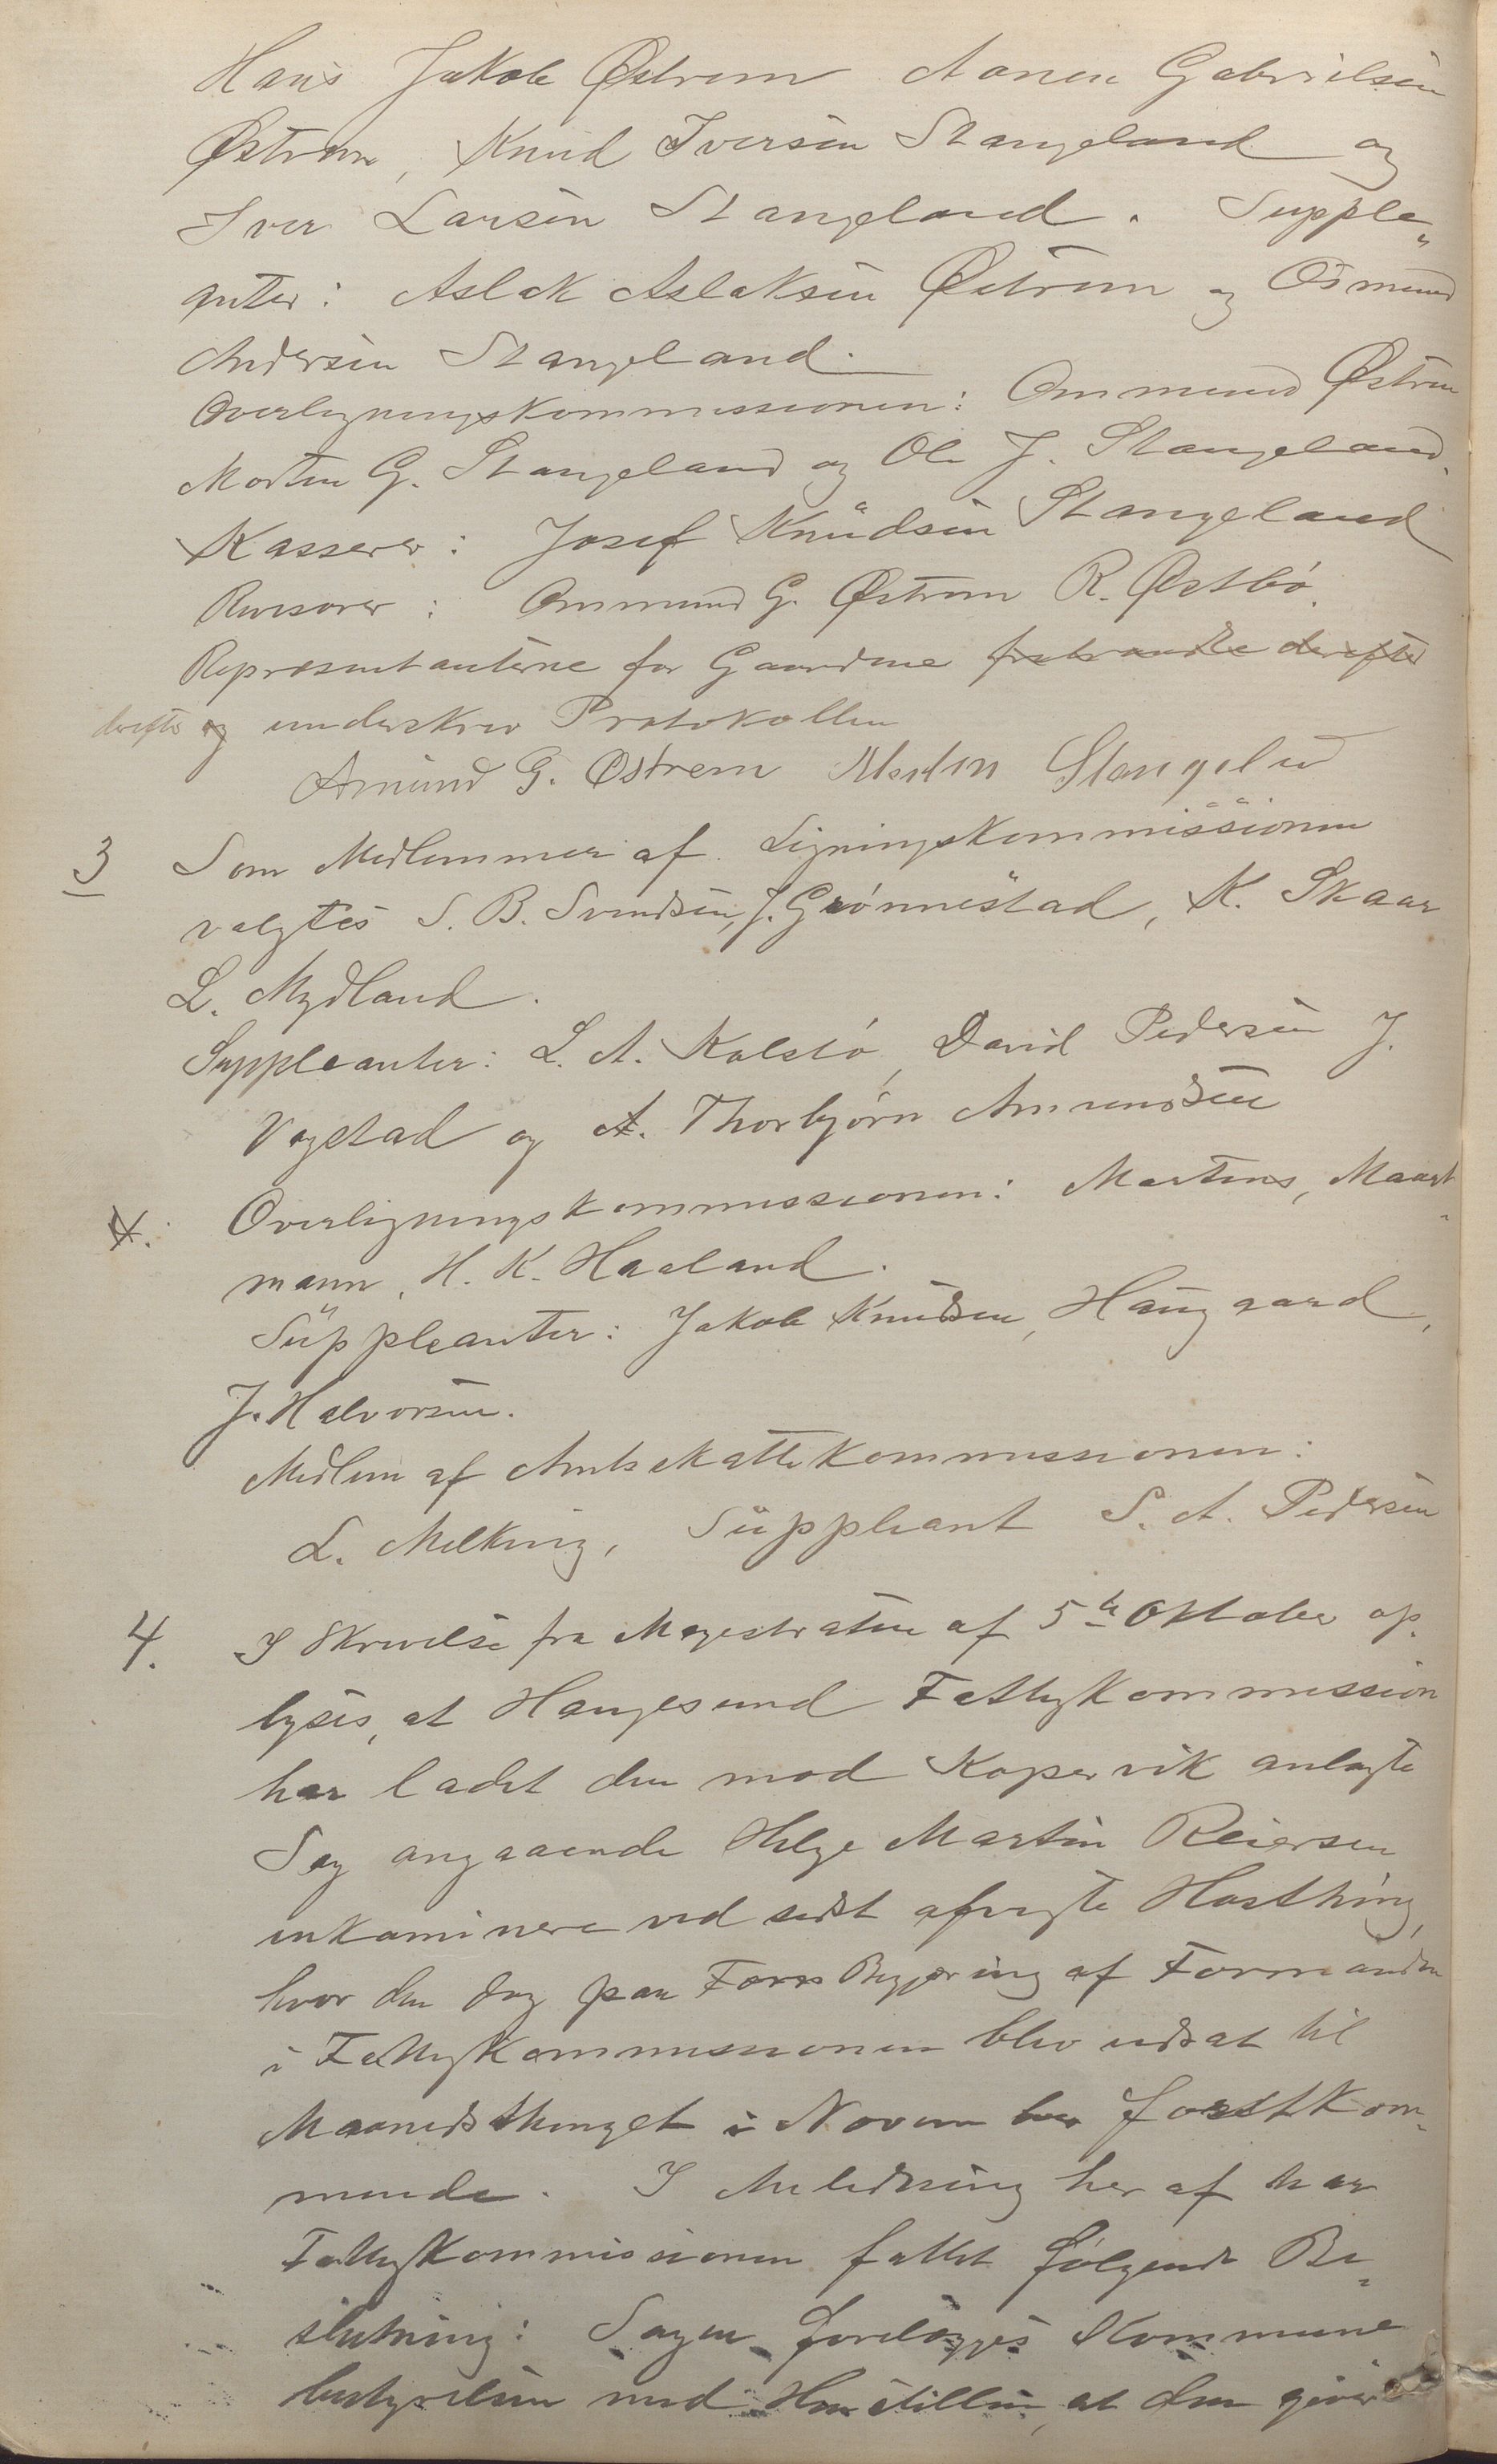 Hans Jakob Østrem Aanen Gabrielsen
Østrem, Knud Iversen Stangeland og
Iver Larsen Stangeland. Supple„
anter: Aslak Aslaksen Østrem og Osmund
Andersen Stangeland.
Overligningskommissionen: Ommund Østrem
Morten G. Stangeland og Ole J. Stangeland.
Kasserer: Josef Knudsen Stangeland
Revisorer: Ommund G. Østrem R. Østbö.
Repræsentanterne for Gaardene fratraadte derefter
derefter og underskrev Protokollen
Amund G. Østrem Morten Stangeland
3 Som Medlemmer af Ligningskommissionen
valgtes S. B. Svendsen, J. Grönnestad, K. Skaar
L. Mydland.
Suppleanter: L. A. Kolstö, David Pedersen J.
Vagstad og A. Thorbjörn Amundsen
4. Overligningskommissionen: Martens, Maart„
mann, H. K. Haaland.
Suppleanter: Jakob Knudsen, Haugaard,
J. Halvorsen.
Medlem af Amtsskattekommissionen:
L. Melking, Suppleant S. A. Pedersen
4. I Skrivelse fra Magistraten af 5te Oktober op„
lyses, at Haugesund Fattigkommission
har ladet den mod Kopervik anlagte
Sag angaaende Helge Martin Reiersen
inkaminere ved sidst afvigte Høstthing,
hvor den dog paa Fors Begjæring af Formanden
i Fattigkommissionen blev udsat til
Maanedsthinget i November førstkom„
mende. I Anledning heraf har
Fattigkommissionen fattet følgende Be„
slutning: Sagen forelægges Kommune
bestyrelsen med Henstillen, at den giver